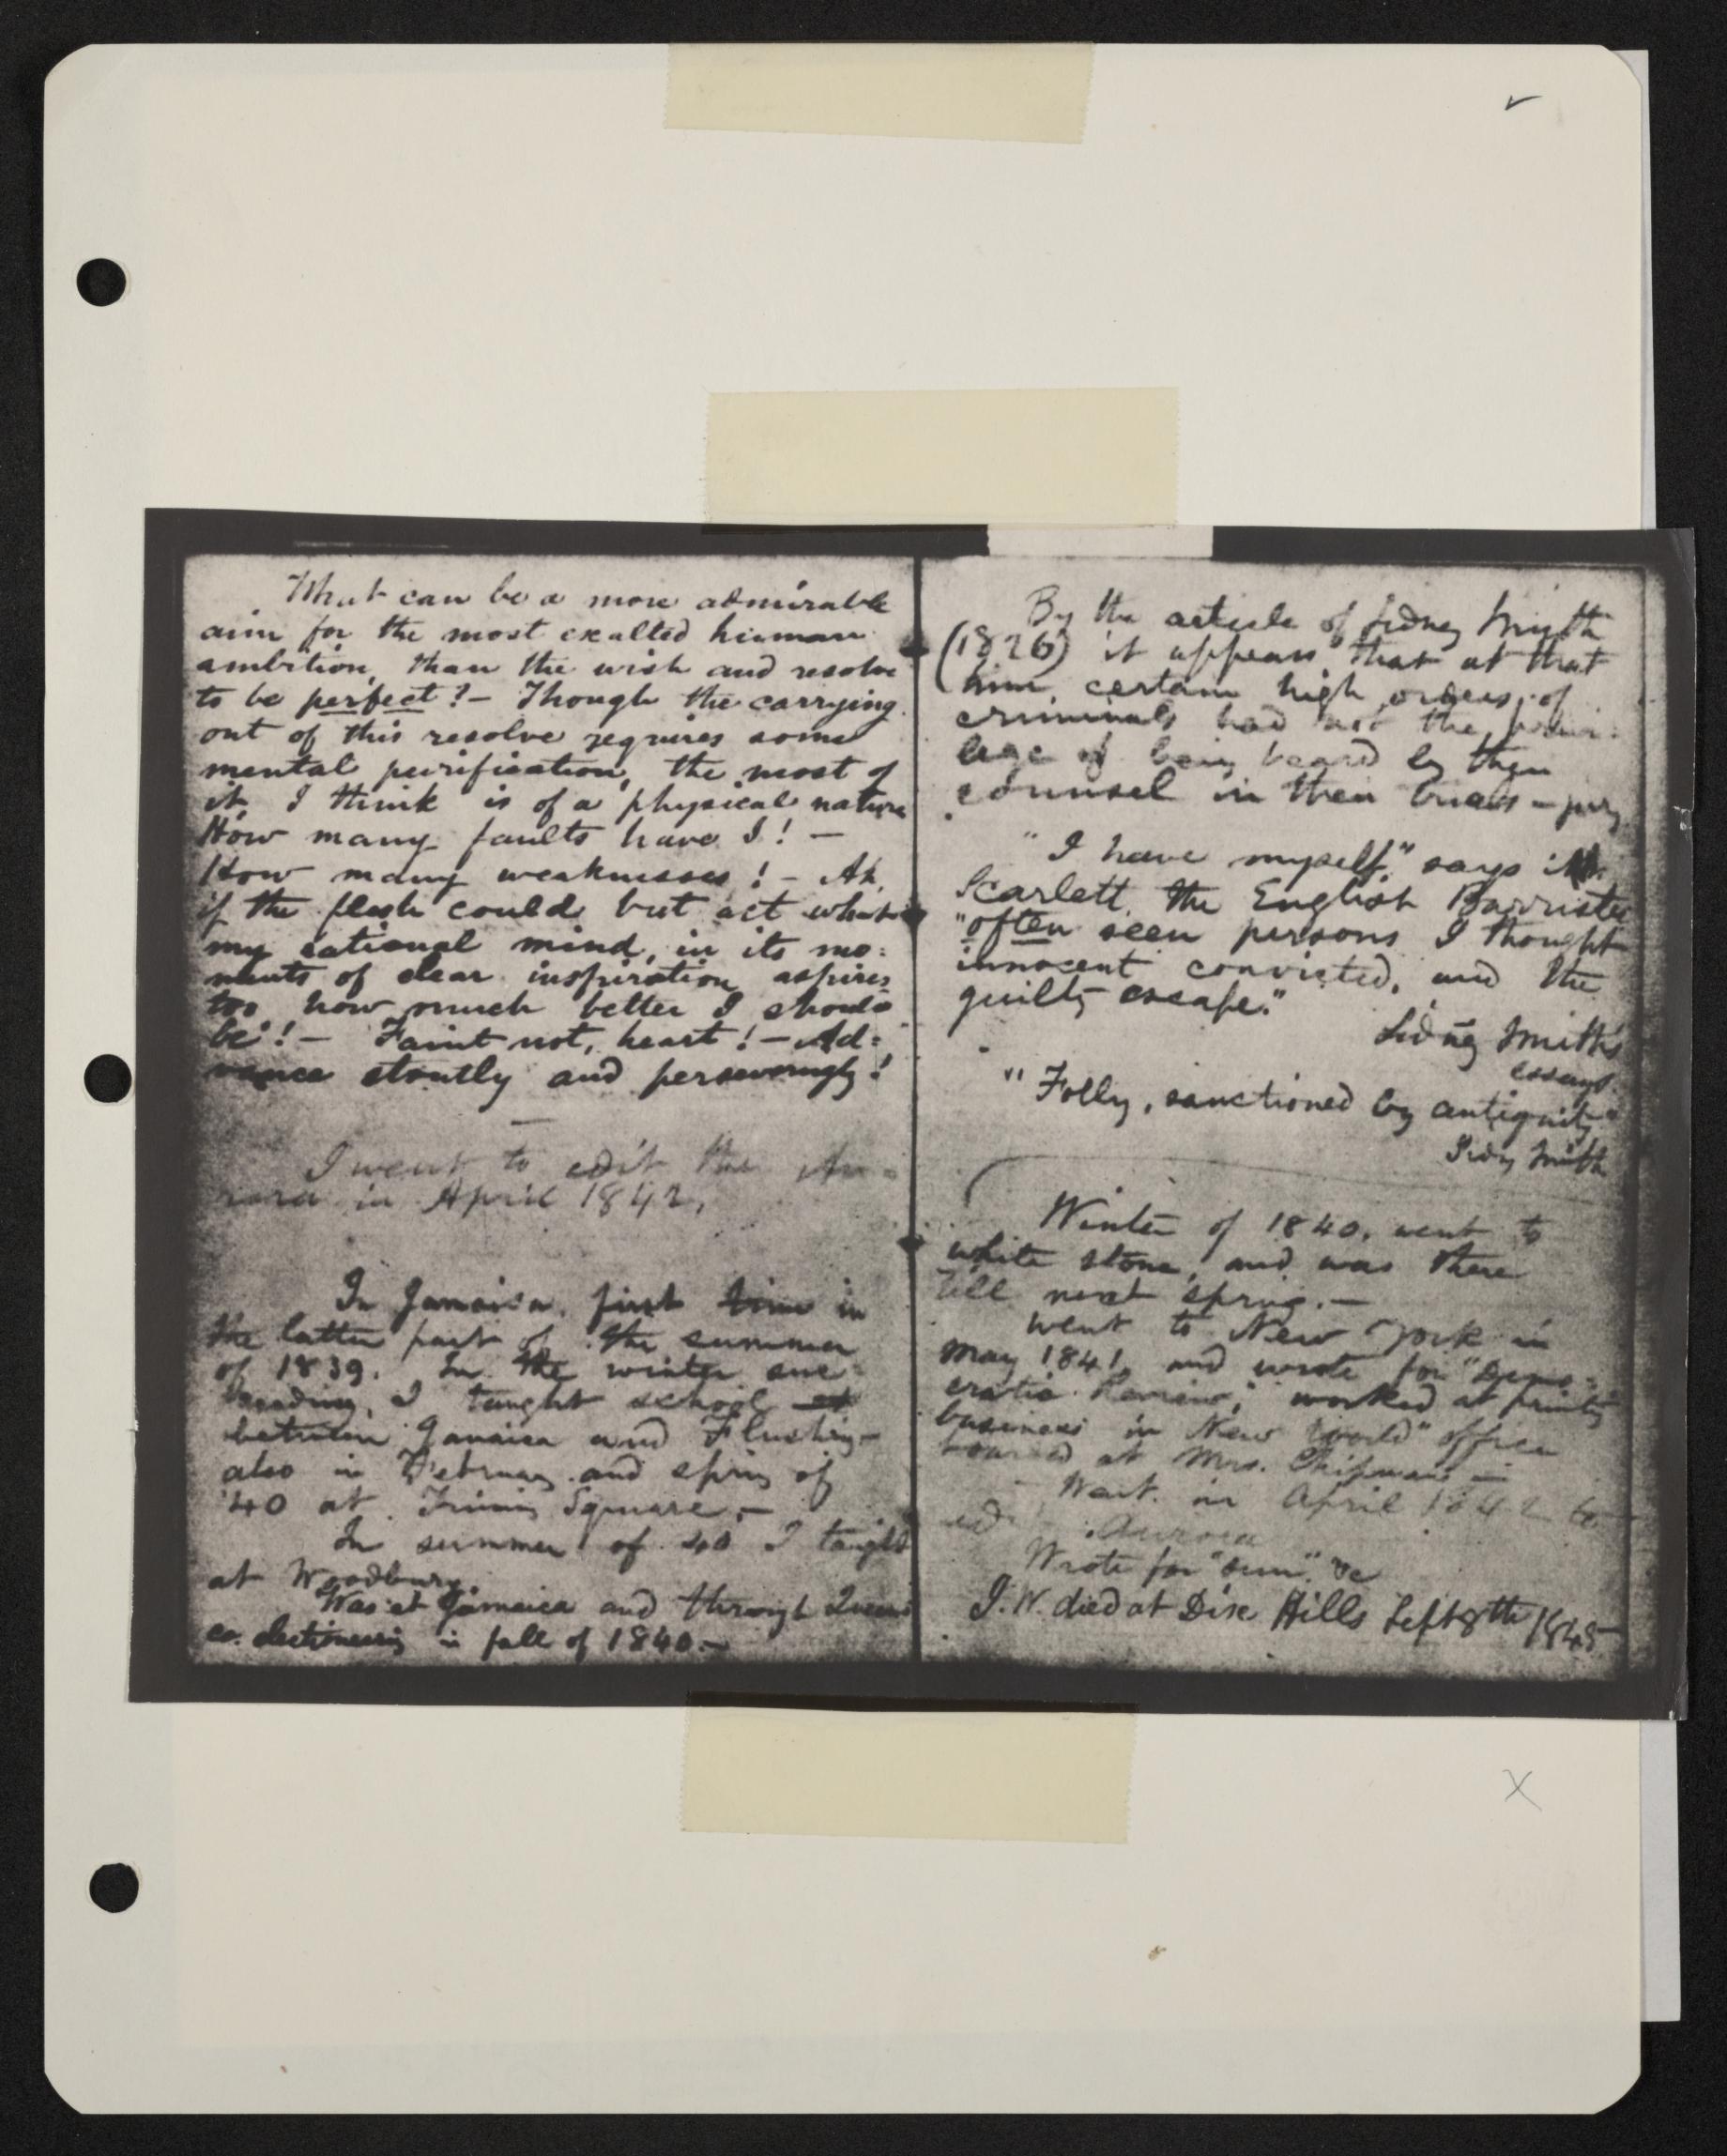 What can be a more admirable
aim for the most exalted human
ambition, than the wish and resolve
to be perfect? — Though the carrying
out of this resolve requires some
mental purification, the most of
it I think is of a physical nature
How many faults have I! —
How many weaknesses! — Ah,
if the flesh could but act what
my rational mind, in its mo=
ments of clear inspiration aspires
too how much better I should
be! — Faint not, heart! — Ad=
vance stoutly and perseveringly!
I went to edit the Au=
rora in April 1842,
In Jamaica, first time in
the latter part of the summer
of 1839. In the winter suc=
ceeding, I taught school
between Jamaica and Flushing —
also in February and spring of
'40 at Triming Square. —
In summer of 40 I taught
at Woodbury
Was at Jamaica and through Queens
co. electioneering in fall of 1840. —
By the article of Sidney Smyth
(1826) it appears that at that
time, certain high orders of
criminals had not the privi=
lege of being heard by their
counsel in their trials — jury
"I have myself," says Mr.
Scarlett, the English Barrister
"often seen persons I thought
innocent convicted, and the
guilty escape."
Sidney Smith's
essays.
"Folly, sanctioned by antiquity"
Sidny Smith
Winter of 1840, went to
white stone, and was there
till next spring. —
Went to New York in
May 1841, and wrote for "Demo=
cratic Review," worked at printing
business in "New World" office
boarded at Mrs. Chipman's —
Went in April 1842 to
ed Aurora
Wrote for "Sun," &c
I.W. died at Dix Hills Sept 8th 1845
X